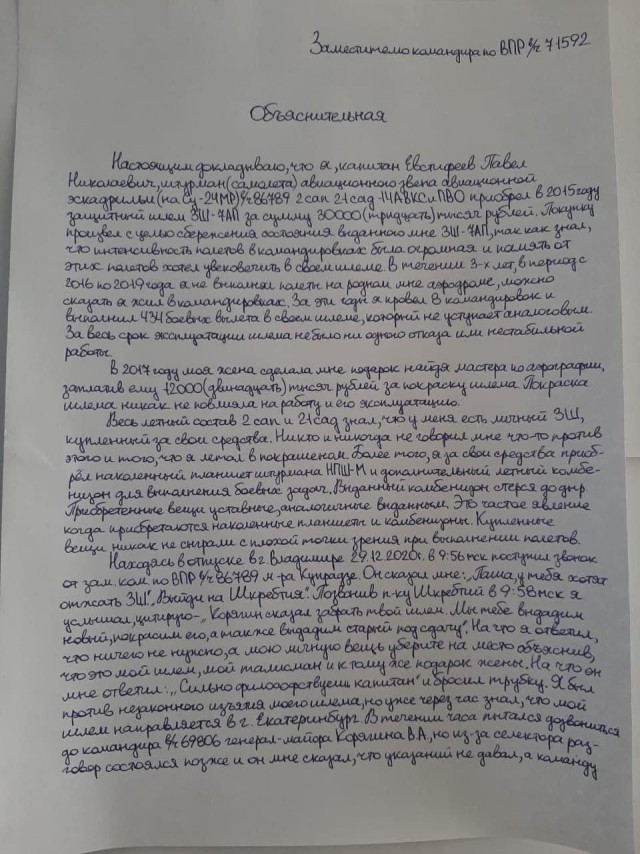 Заместителю командира по ВПР в/ч 71592
Объяснительная
Настоящим докладываю, что я, капитан Евстифеев Павел
Николаевич, штурман (самолета) авиационного звена авиационной
эскадрильи (на Су-24МР) в/ч 86789 2 сап 21 сад 14АВКСиПВО приобрел в 2015 году
защитный шлем ЗШ-7АП за сумму 30000 (тридцать) тысяч рублей. Покупку
произвел с целью сбережения состояния выданного мне ЗШ-7АП, так как знал,
что интенсивность полетов в командировках была огромная и память от
этих полетов хотел увековечить в своем шлеме. В течении 3-х лет, в период с
2016 по 2019 года я не выполнял полеты на родном мне аэродроме, можно
сказать я жил в командировках. За эти годы я провел 8 командировок и
выполнил 434 боевых вылета в своем шлеме, который не уступает аналоговым.
За весь срок эксплуатации шлема не было ни одного отказа или нестабильной
работы.
В 2017 году моя жена сделала мне подарок найдя мастера по аэрографии,
заплатив ему 12000 (двинадцать) тысяч рублей за покраску шлема. Покраска
шлема никак не повлияла на работу и его эксплуатацию.
Весь летный состав 2 сап и 21 сад знал, что у меня есть личный ЗШ,
купленный за свои средства. Никто и никогда не говорил мне что-то против
этого и того, что я летал в покрашеном. Более того, я за свои средства приоб-
рёл наколенный планшет штурмана НПШ-М и дополнительный летный комбе-
низон для выполнения боевых задач. Выданный комбенизон стерся до дыр
Приобретенные вещи уставные, аналогичные выданным. Это частое явление
когда приобретаются наколенные планшеты и комбенизоны. Купленные
вещи никак не сыграли с плохой точки зрения при выполнении полетов.
Находясь в отпуске в г. Владимире 29.12.2020г. в 9:56 мск поступил звонок
от зам. ком по ВПР в/ч 86789 м-ра Купрадзе. Он сказал мне: „Паша, у тебя хотят
отжать ЗШ". „Выйди на Шкребтия". Позвонив п-ку Шкребтий в 9:58 мск я
услышал, цитирую- „Корягин сказал забрать твой шлем. Мы тебе выдадим
новый, покрасим его, а так же выдадим старый под сдачу". На что я ответил,
что ничего не нужно, а мою личную вещь уберите на место объяснив,
что это мой шлем, мой талисман и к тому же подарок жены. На что он
мне ответил: „Сильно философствуеш капитан" и бросил трубку. Я был
против незаконного изъятия моего шлема, но уже через час знал, что мой
шлем направляется в г. Екатеринбург. В течении часа пытался дозвониться
до командира в/ч 69806 генерал-майора Корягина В.А., но из-за селектора раз-
говор состоялся позже и он мне сказал, что указаний не давал, а команду